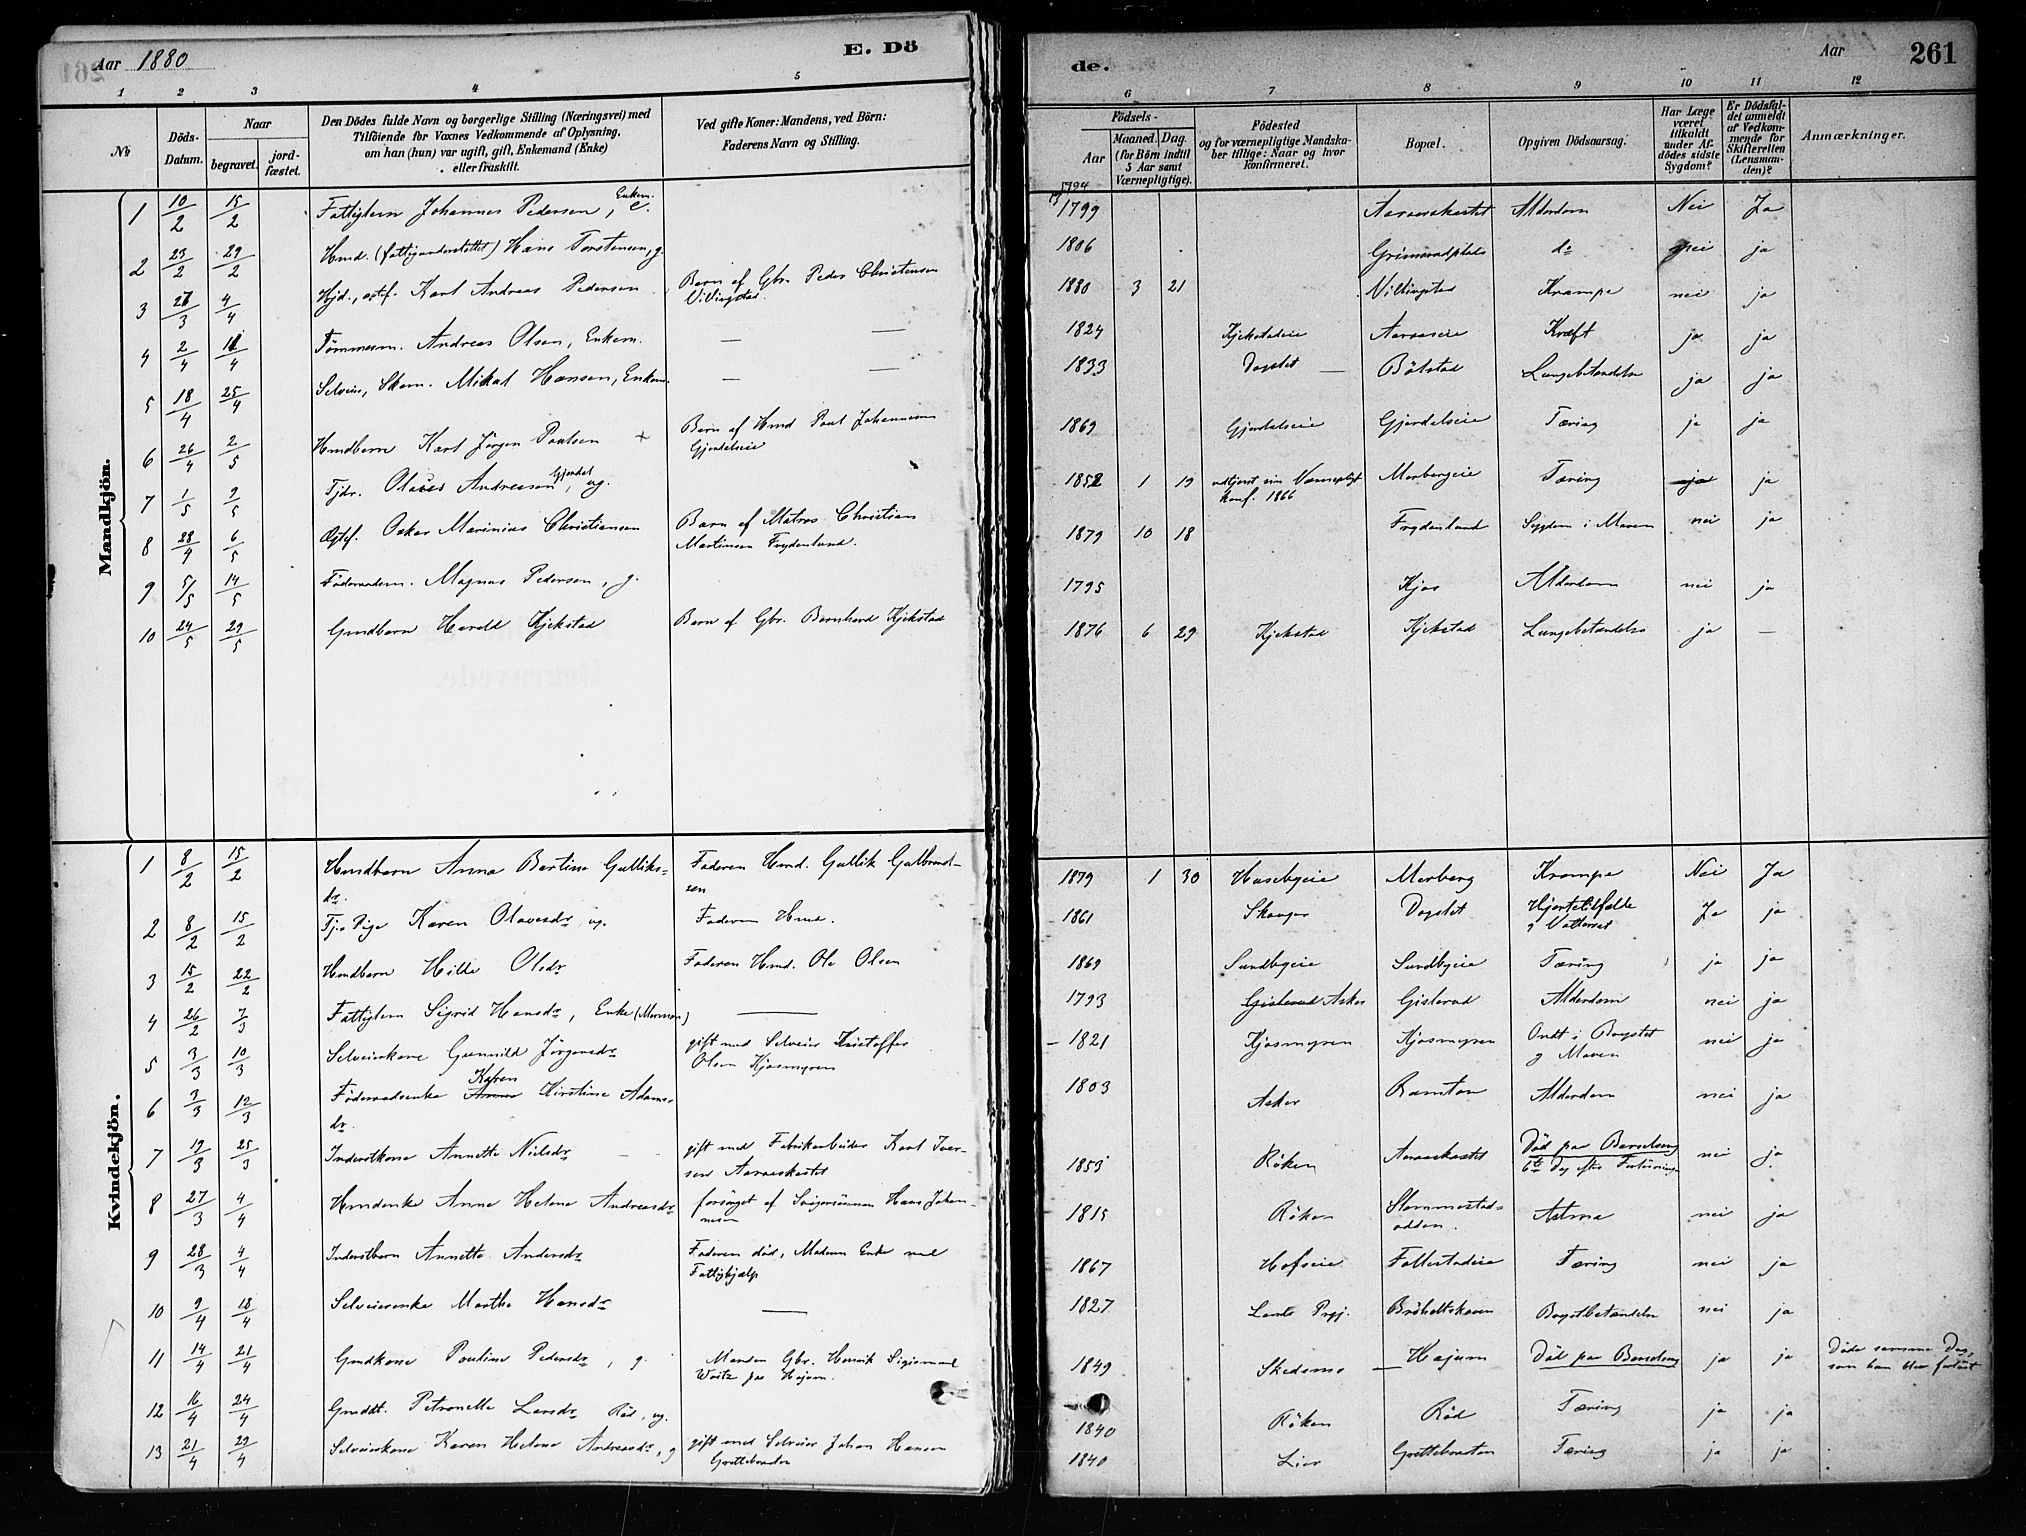 Aar 1880
E. Dö
1 2 3 4 5
№
Döds-Datum.
Naar
begravet.
jord-fæstet.
Den Dödes fulde Navn og borgerlige Stilling (Næringsvei) med
Tilföiende for Voxnes Vedkommende af Oplysning,
om han (hun) var ugift, gift, Enkemand (Enke)
eller fraskilt.
Ved gifte Koner: Mandens, ved Börn:
Faderens Navn og Stilling.
Mandkjön.
1 10/2 15/2 Fattiglem Johannes Pedersen, Enkem.
2 23/2 29/2 Hmd. (fattigunderstöttet) Hans Torstensen, g.
3 27/3 4/4 Karl Andreas Pedersen Barn af Gbr. Peder Christensen
Villingstad.
4 2/4 11/4 Tömmerm. Andreas Olsen, Enkem. —
5 18/4 25/4 Selveier, Skom. Mikal Hansen, Enkem. —
6 26/4 2/5 Hmdbarn Karl Jörgen Paulsen Barn af Hmd Paul Johannesen
Gjerdalseie
7 1/5 9/5 Tjdr. Olaves Andreasen, ug.
8 28/4 6/5 Ægtef. Oskar Marinius Christiansen Barn af Matros Christian
Martinsen Frydenlund.
9 5/5 14/5 Föderaadsm. Magnus Pedersen, g.
10 24/5 29/5 Gmdbarn Harald Kjekstad Barn af Gbr. Bernhard Kjekstad
Kvindekjön.
1 8/2 15/2 Hmdbarn Anna Bertine Gulliks-
dr. Faderen Hmd. Gullik Gulbrand-
sen
2 8/2 15/2 Tj. Pige Karen Olavesdr, ug. Faderen Hmd.
3 15/2 22/2 Hmdbarn Hilda Olsdr Faderen Hmd. Ole Olsen
4 26/2 7/3 Fattiglem Sigrid Hansdr, Enke (Mormor) —
5 3/3 10/3 Selveierkone Gunnild Jörgensdr gift med Selveier Kristoffer
Olsen Kjosmyren
6 3/3 12/3 Föderaadsenke Karen Kirstine Adams-
dr.
7 19/3 25/3 Inderstkone Annette Nielsdr gift med Fabrikarbeider Karl Iver-
sen Aaraaskastet
8 27/3 4/4 Hmdenke Anne Helene Andreasdr forsörget af Svigersönnen Hans Johan-
nesen
9 28/3 4/4 Inderstbarn Annette Andersdr Faderen död, Moderen Enke med
Fattighjælp
10 9/4 18/4 Selveierenke Marthe Hansdr —
11 14/4 21/4 Gmdkone Pauline Pedersdr, g. Manden Gbr. Henrik Sigismund
Wortz paa Hajum.
12 16/4 24/4 Gmddt. Petronelle Larsdr Röd, ug.
13 21/4 29/4 Selveierkone Karen Helene Andreasdr, g gift med Selveier Johan Hansen
Grottebraaten
de.
Aar
261
6 7 8 9 10 11 12
Födsels-
Aar
Maaned. Dag.
(for Börn indtil
5 Aar samt
Værnepligtige).
Födested
og for værnepligtige Mandska-
ber tillige: Naar og hvor
konfirmeret.
Bopæl.
Opgiven Dödsaarsag.
Har Læge
været
tilkaldt
under Af-
dödes sidste
Sygdom?
Er Dödsfal-
det anmeldt
af Vedkom-
mende for
Skifteretten
(Lensman-
den)?
Anmærkninger.
1794
1799 Aaraaskastet Alderdom Nei Ja
1806 Grimsrudplads do nei ja
1880 3 21 Villingstad Krampe nei ja
1824 Kjekstadeie Aaraaseie Kræft ja ja
1833 Dagslet — Bölstad Lungebetændelse ja ja
1869 Gjerdalseie Gjerdalseie Tæring ja ja
1852 1 19 udtjent sin Værnepligt
Konf. 1866 Morbergeie Tæring ja ja
1879 10 18 Frydenlund Sygdom i Maven nei ja
1795 Kjos Alderdom nei ja
1876 6 29 Kjekstad Kjekstad Lungebetændelse ja —
1879 1 30 Husebyeie Morberg Krampe Nei Ja
1861 Skauger Dagslet Hjertetilfælde
og Vattersot Ja ja
1869 Sundbyeie Sundbyeie Tæring ja ja
1793 Gislerud Asker Gislerud Alderdom nei ja
1821 Kjosmyren Kjosmyren Ondt i Brystet
og Maven nei ja
1803 Asker Ramton Alderdom nei ja
1853 Röken Aaraaskastet Död paa Barselseng
6te Dag efter Forlösningen nei ja.
1815 Röken Slemmestad-
odden. Astma nei ja
1867 Hofseie Follestadeie Tæring nei ja
1827 Lands Prgj. Bråholtskauen Brystbetændelse nei ja
1849 Skedsmo — Hajum Död paa Barselseng ja ja Döde samme Dag,
som hun blev forlöst
1840 Röken Röd Tæring ja ja
1840 Lier Grottebraaten Tæring ja ja